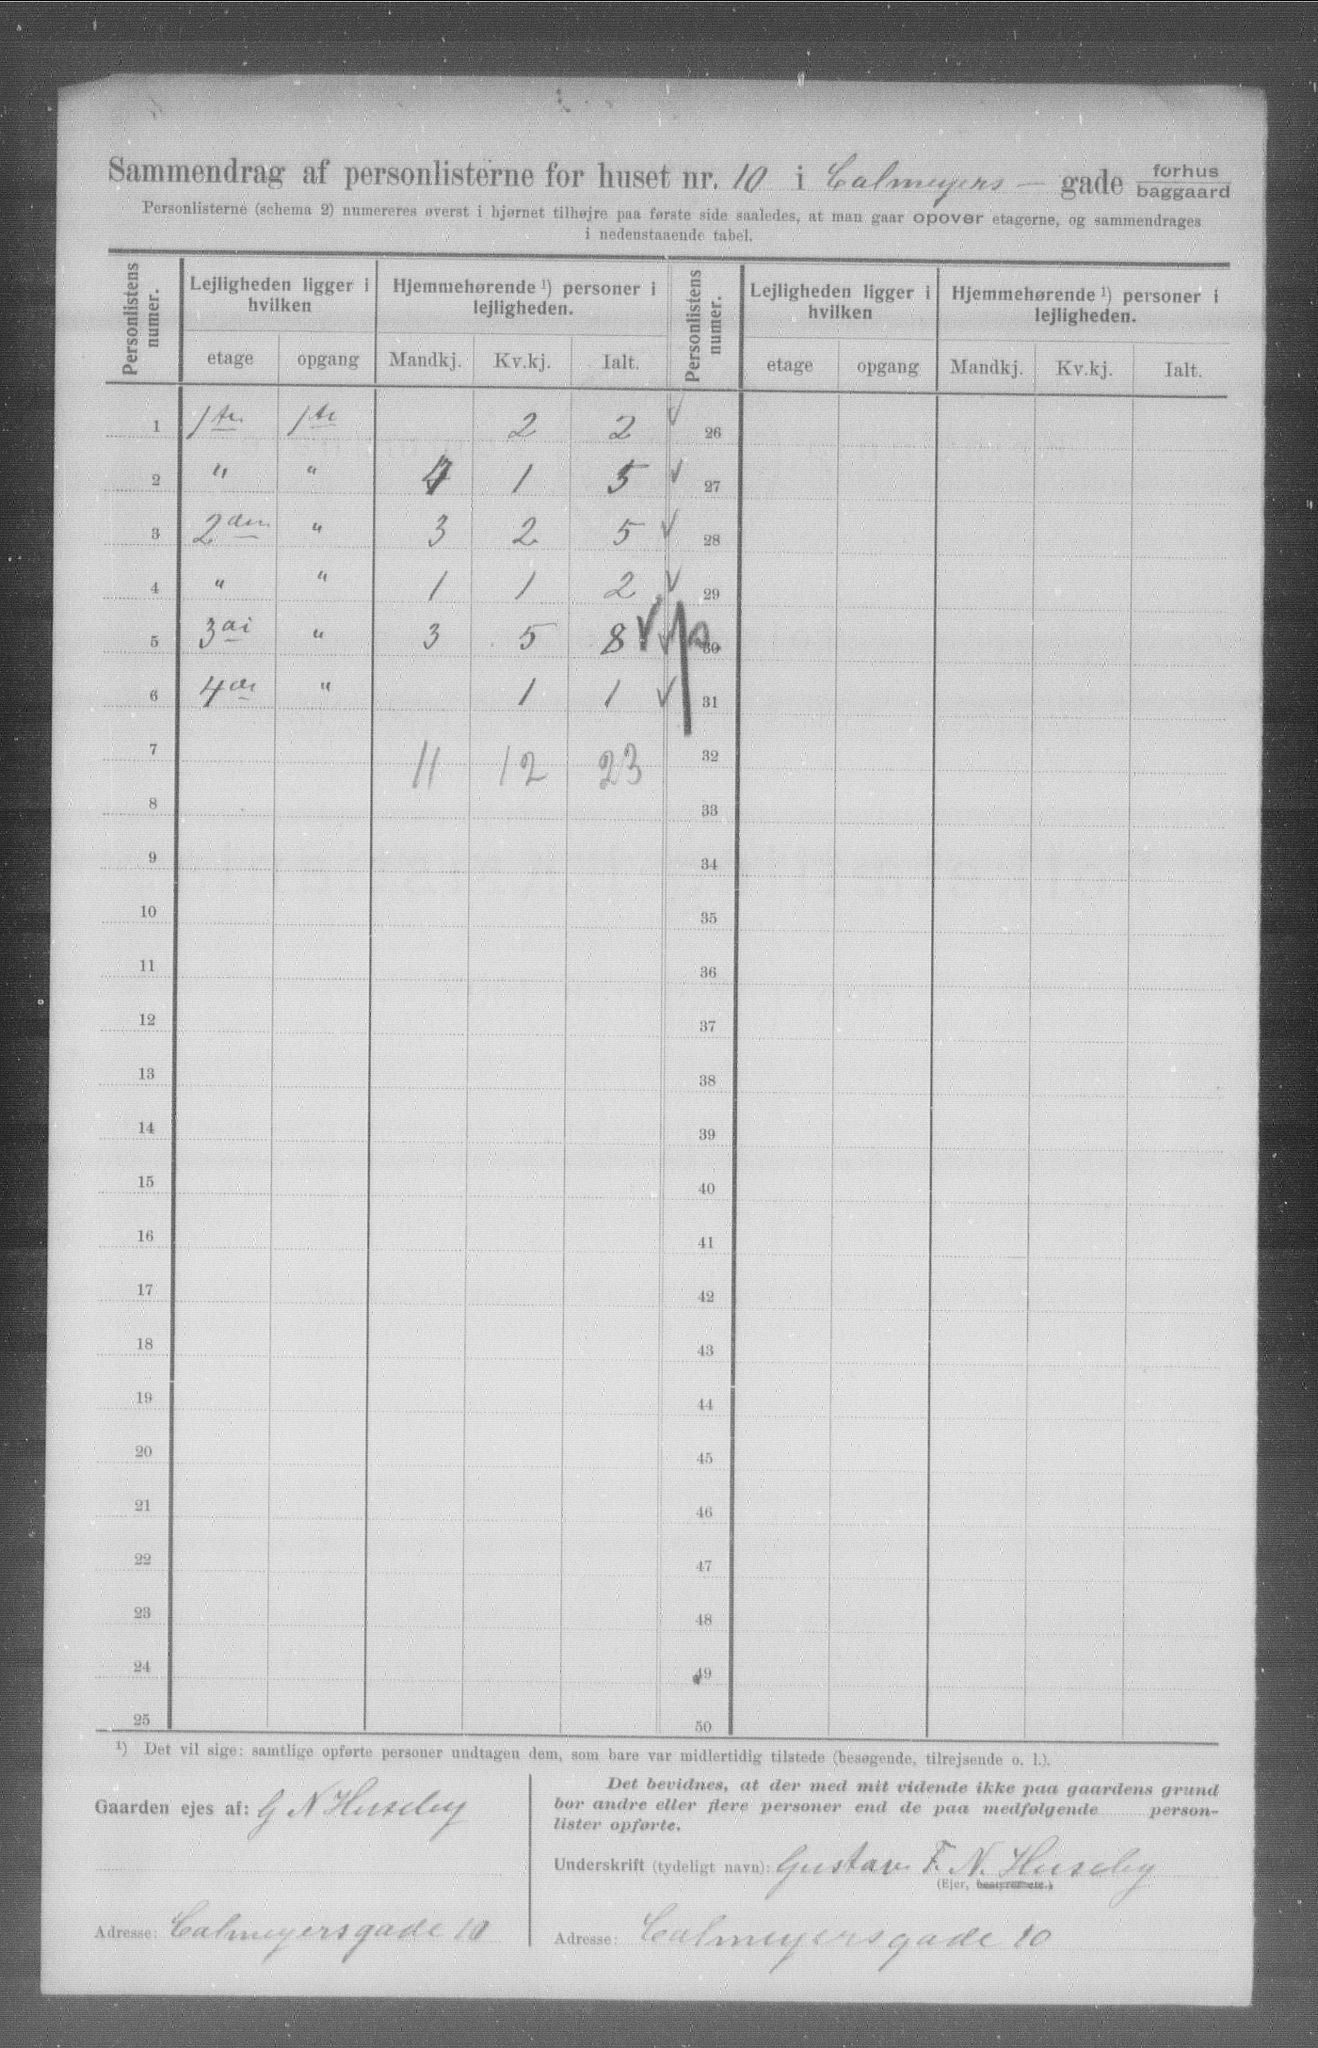 Sammendrag af personlisterne for huset nr. 10 i Calmeyers — gade forhus baggaard
Personlisterne (schema 2) numereres øverst i hjørnet tilhøjre paa første side saaledes, at man gaar opover etagerne, og sammendrages
i nedenstaaende tabel.
Personlistens numer. Lejligheden ligger i hvilken Hjemmehørende ¹) personer i lejligheden. Personlistens numer. Lejligheden ligger i hvilken Hjemmehørende ¹) personer i lejligheden.
etage opgang Mandkj. Kv.kj. Ialt. etage opgang Mandkj. Kv.kj. Ialt.
1 1ste 1ste 2 2 26
2 " " 4 1 5 27
3 2den " 3 2 5 28
4 " " 1 1 2 29
5 3di " 3 5 8 30
6 4de " 1 1 31
7 11 12 23 32
8 33
9 34
10 35
11 36
12 37
13 38
14 39
15 40
16 41
17 42
18 43
19 44
20 45
21 46
22 47
23 48
24 49
25 50
¹) Det vil sige: samtlige opførte personer undtagen dem, som bare var midlertidig tilstede (besøgende, tilrejsende o. l.).
Gaarden ejes af: G N Huseby
Adresse: Calmeyersgade 10
Det bevidnes, at der med mit vidende ikke paa gaardens grund
bor andre eller flere personer end de paa medfølgende person-
lister opførte.
Underskrift (tydeligt navn): Gustav F. N. Huseby
(Ejer, bestyrer etc.)
Adresse: Calmeyersgade 10